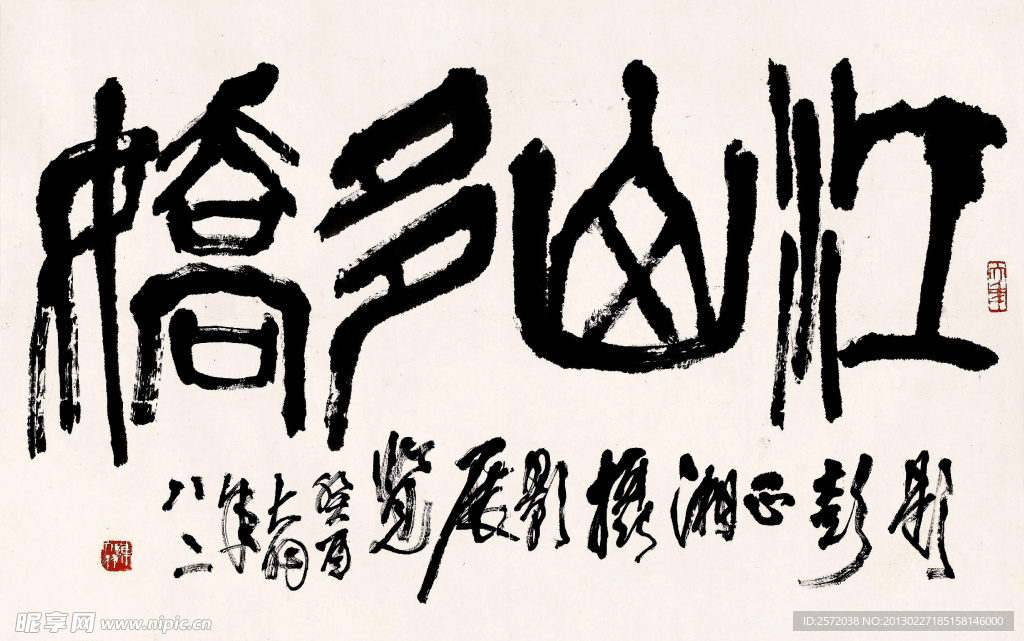 江山多嬌
彭正湘攝影展覽
癸酉
大羽
年
八二
昵享网 www.nipic.cn
ID:2572038 NO:20130227185158146000